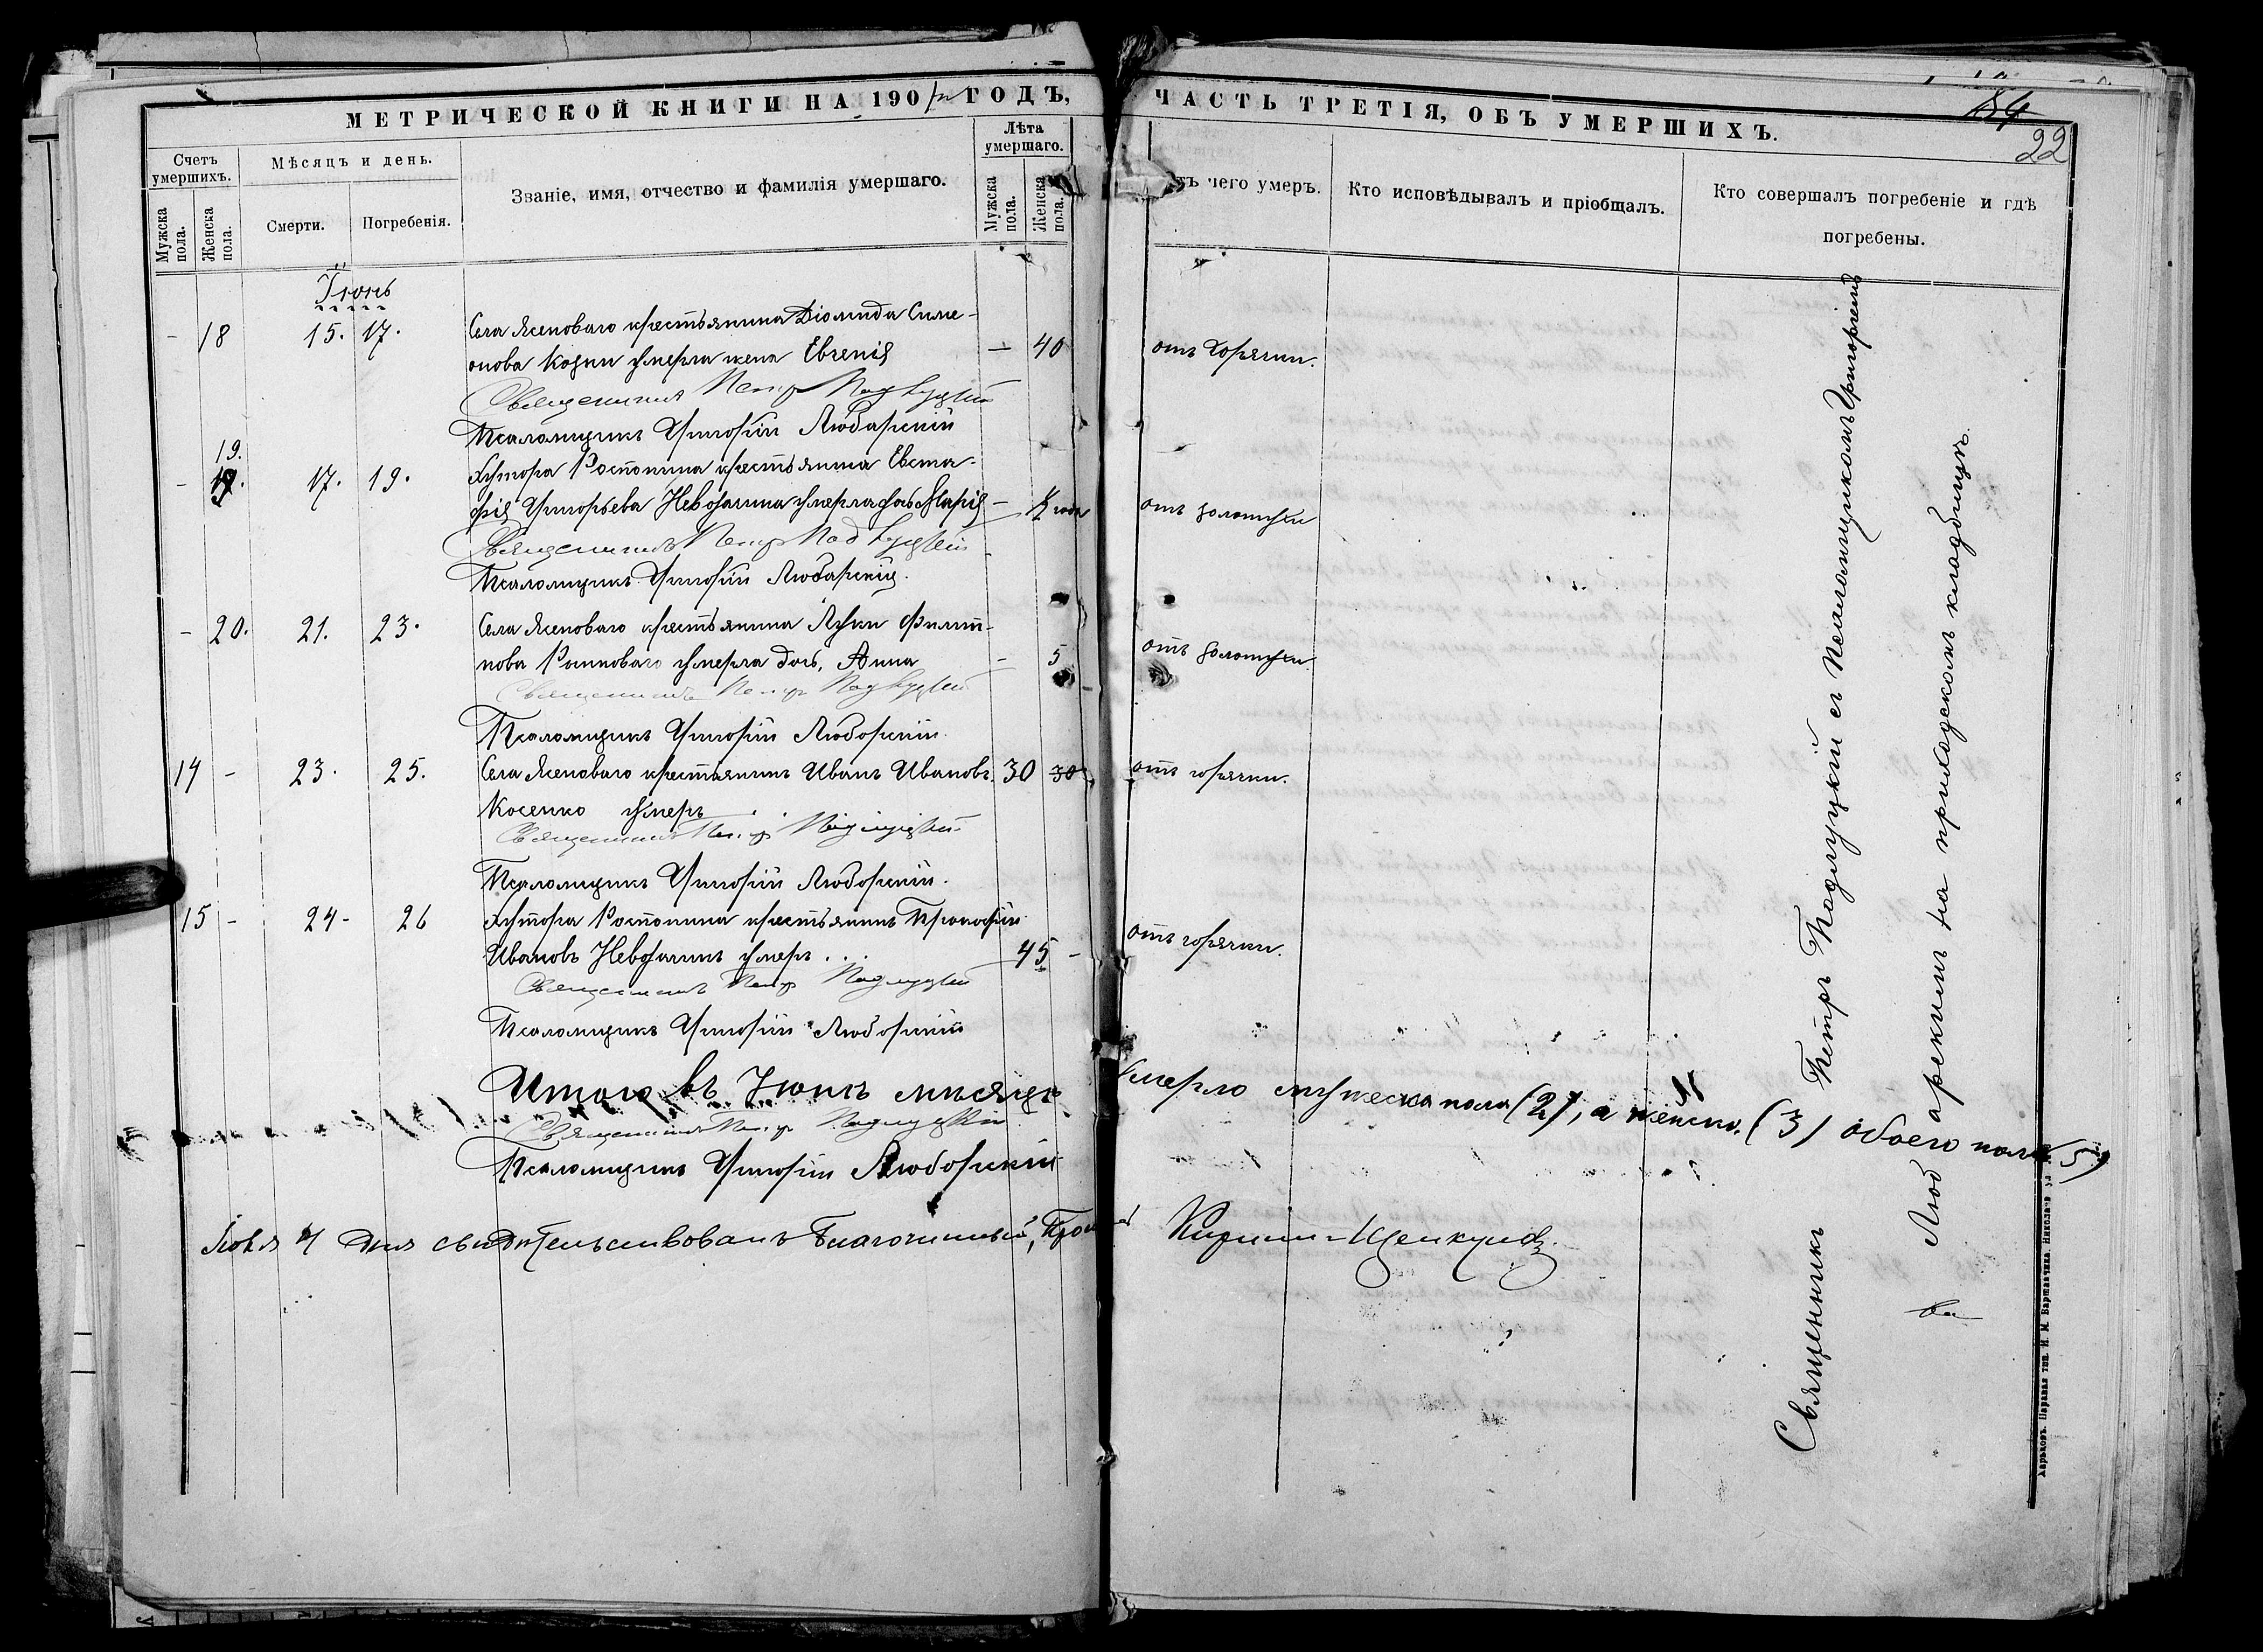 МЕТРИЧЕСКОЙ КНИГИ НА 190 ГОДЪ,
Счетъ умершихъ.
Мужска пола.
Женска пола.
Мѣсяцъ и день.
Смерти.
Погребенія.
Званіе, имя, отчество и фамилія умершаго.
Лѣта умершаго.
Мужска пола.
Женска пола.
Іюнь
- 18 15. 17. Села Ясеноваго крестьянина Діомида Симе-
онова умерла жена Евгенія — 40
Священникъ Петръ Подлуцкій
Псаломщикъ Григорій Любарскій
19.
- 19. 17. 19. Хутора крестьянина Евста-
фія Григорьева умерла дочь Марія — года
Священникъ Петръ Подлуцкій
Псаломщикъ Григорій Любарскій.
- 20. 21. 23. Села Ясеноваго крестьянина Луки Филип-
пова умерла дочь, Анна — 5
Священникъ Петръ Подлуцкій
Псаломщикъ Григорій Любарскій.
14 - 23. 25. Села Ясеноваго крестьянинъ Иванъ Ивановъ 30 30
Косенко умеръ
Священникъ Петръ Подлуцкій
Псаломщикъ Григорій Любарскій.
15 - 24- 26 Хутора крестьянинъ Прокофій
Ивановъ умеръ . . . 45 -
Священникъ Петръ Подлуцкій
Псаломщикъ Григорій Любарскій
Итого въ Іюнѣ мѣсяцѣ
Священникъ Петръ Подлуцкій
Псаломщикъ Григорій Любарскій
Іюля 4 дня свидѣтельствовалъ Благочинный,
ЧАСТЬ ТРЕТІЯ, ОБЪ УМЕРШИХЪ.
84
22
тъ чего умеръ.
Кто исповѣдывалъ и пріобщалъ.
Кто совершалъ погребеніе и гдѣ
погребены.
отъ горячки.
отъ золотухи
отъ золотухи
отъ горячки.
отъ горячки.
умерло мужеска пола (2), а женска. (3) обоего пола (5)
Кириллъ
Священникъ Петръ Подлуцкій съ Псаломщикомъ Григоріемъ
Любарскимъ на приходскомъ кладбищѣ.
Харьковъ. Паровая тип. И. М. Варшавчика,